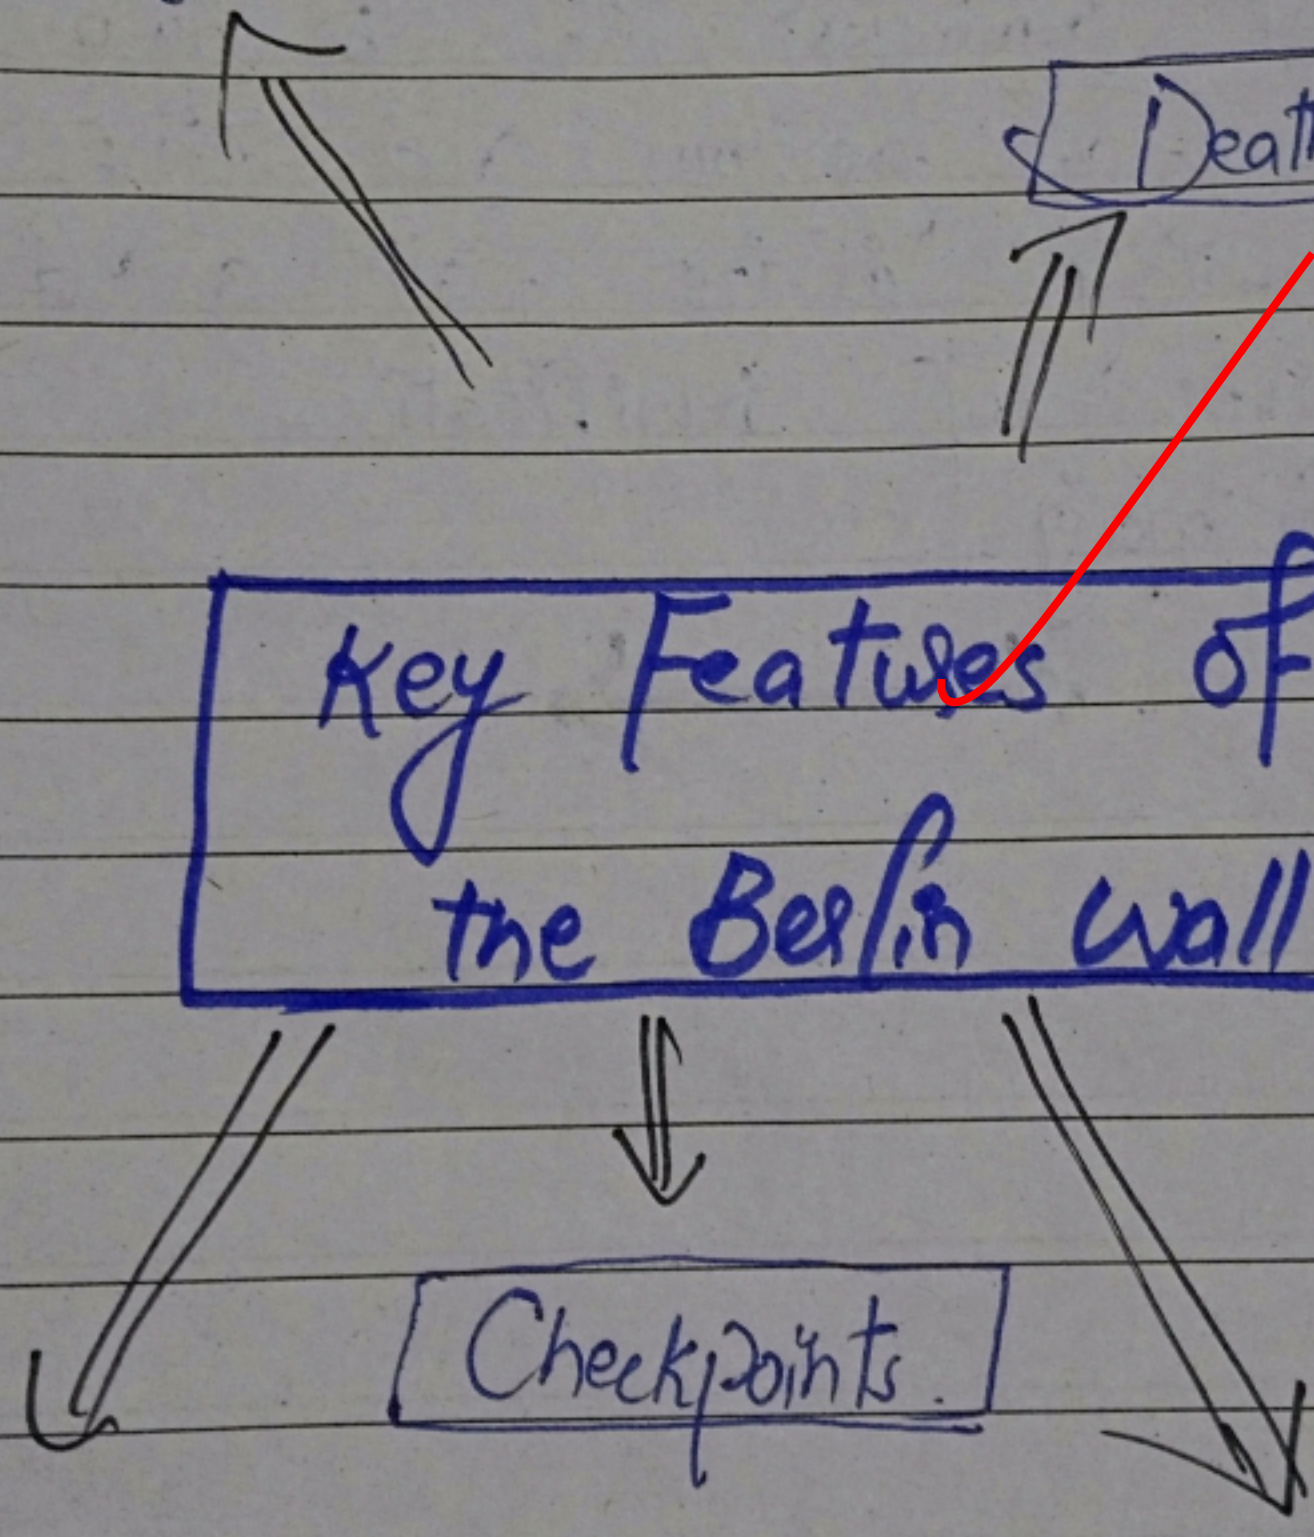 Death
Key Features of
the Berlin wall
Checkpoints.